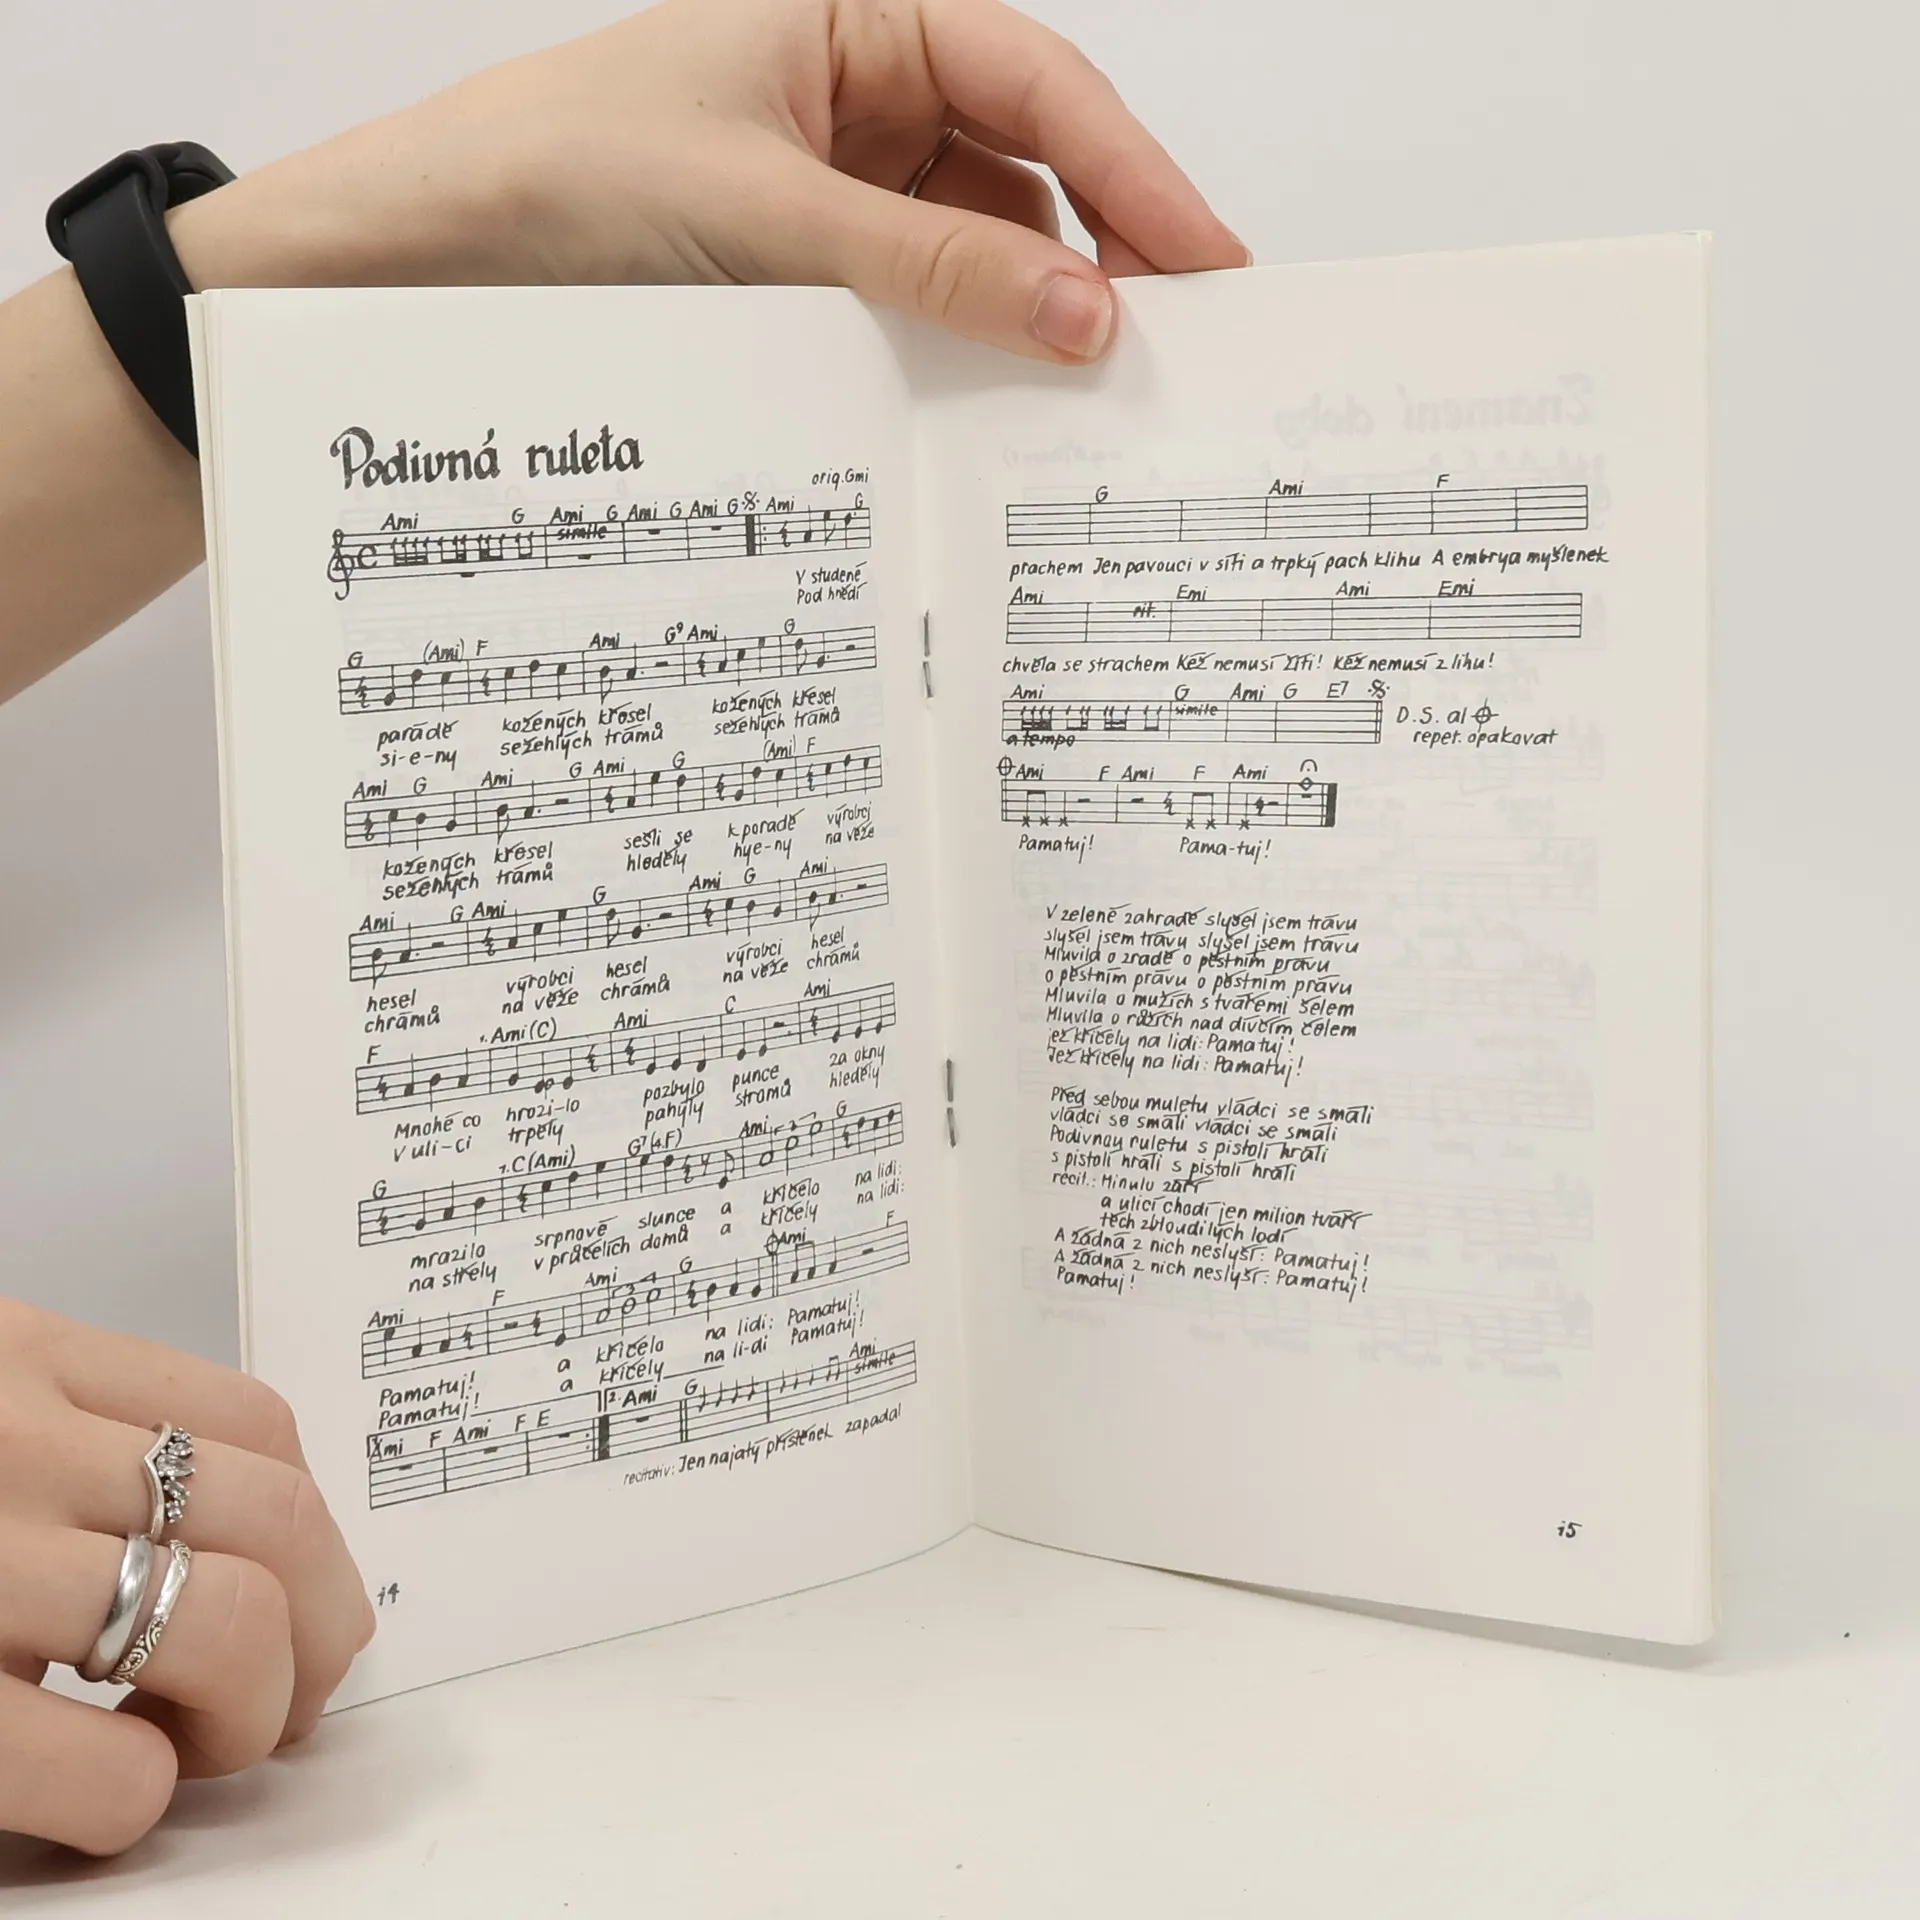 Podivná ruleta
orig. Gmi
Ami G Ami G Ami G Ami G Ami G
simile
V studené
Pod hnědí
G (Ami) F Ami G9 Ami G
parádě kožených křesel kožených křesel
si-e-ny sežehlých trámů sežehlých trámů
Ami G Ami G Ami G (Ami) F
kožených křesel sešli se k poradě výrobci
sežehlých trámů hleděly hye-ny na věže
Ami G Ami G Ami G Ami
hesel výrobci hesel výrobci hesel
chrámů na věže chrámů na věže chrámů
F 1. Ami (C) Ami C Ami
Mnohé co hrozi-lo pozbylo punce za okny
V uli-ci trpěly pahýly stromů hleděly
G 1. C (Ami) G7 (4.F) Ami 3 G
mrazilo srpnové slunce a křičelo na lidi:
na střely v průčelích domů a křičely na lidi:
Ami F Ami 3 G Ami F
Pamatuj! a křičelo na lidi: Pamatuj!
Pamatuj! a křičely na li-di Pamatuj!
1. Ami F Ami F E 2. Ami G Ami
simile
recitativ: Jen najatý přístěnek zapadal
14
G Ami F
prachem Jen pavouci v síti a trpký pach klihu A embrya myšlenek
Ami rit. Emi Ami Emi
chvěla se strachem Kéž nemusí žíti! Kéž nemusí z lihu!
Ami G Ami G E7
simile
a tempo
D.S. al
repet. opakovat
Ami F Ami F Ami
Pamatuj! Pama-tuj!
V zelené zahradě slyšel jsem trávu
slyšel jsem trávu slyšel jsem trávu
Mluvila o zradě o pěstním právu
o pěstním právu o pěstním právu
Mluvila o mužích s tvářemi šelem
Mluvila o růžích nad dívčím čelem
jež křičely na lidi: Pamatuj!
Jež křičely na lidi: Pamatuj!
Před sebou muletu vládci se smáli
vládci se smáli vládci se smáli
Podivnou ruletu s pistolí hráli
s pistolí hráli s pistolí hráli
recit.: Minulu září
a ulicí chodí jen milion tváří
těch zbloudilých lodí
A žádná z nich neslyší: Pamatuj!
A žádná z nich neslyší: Pamatuj!
Pamatuj!
15